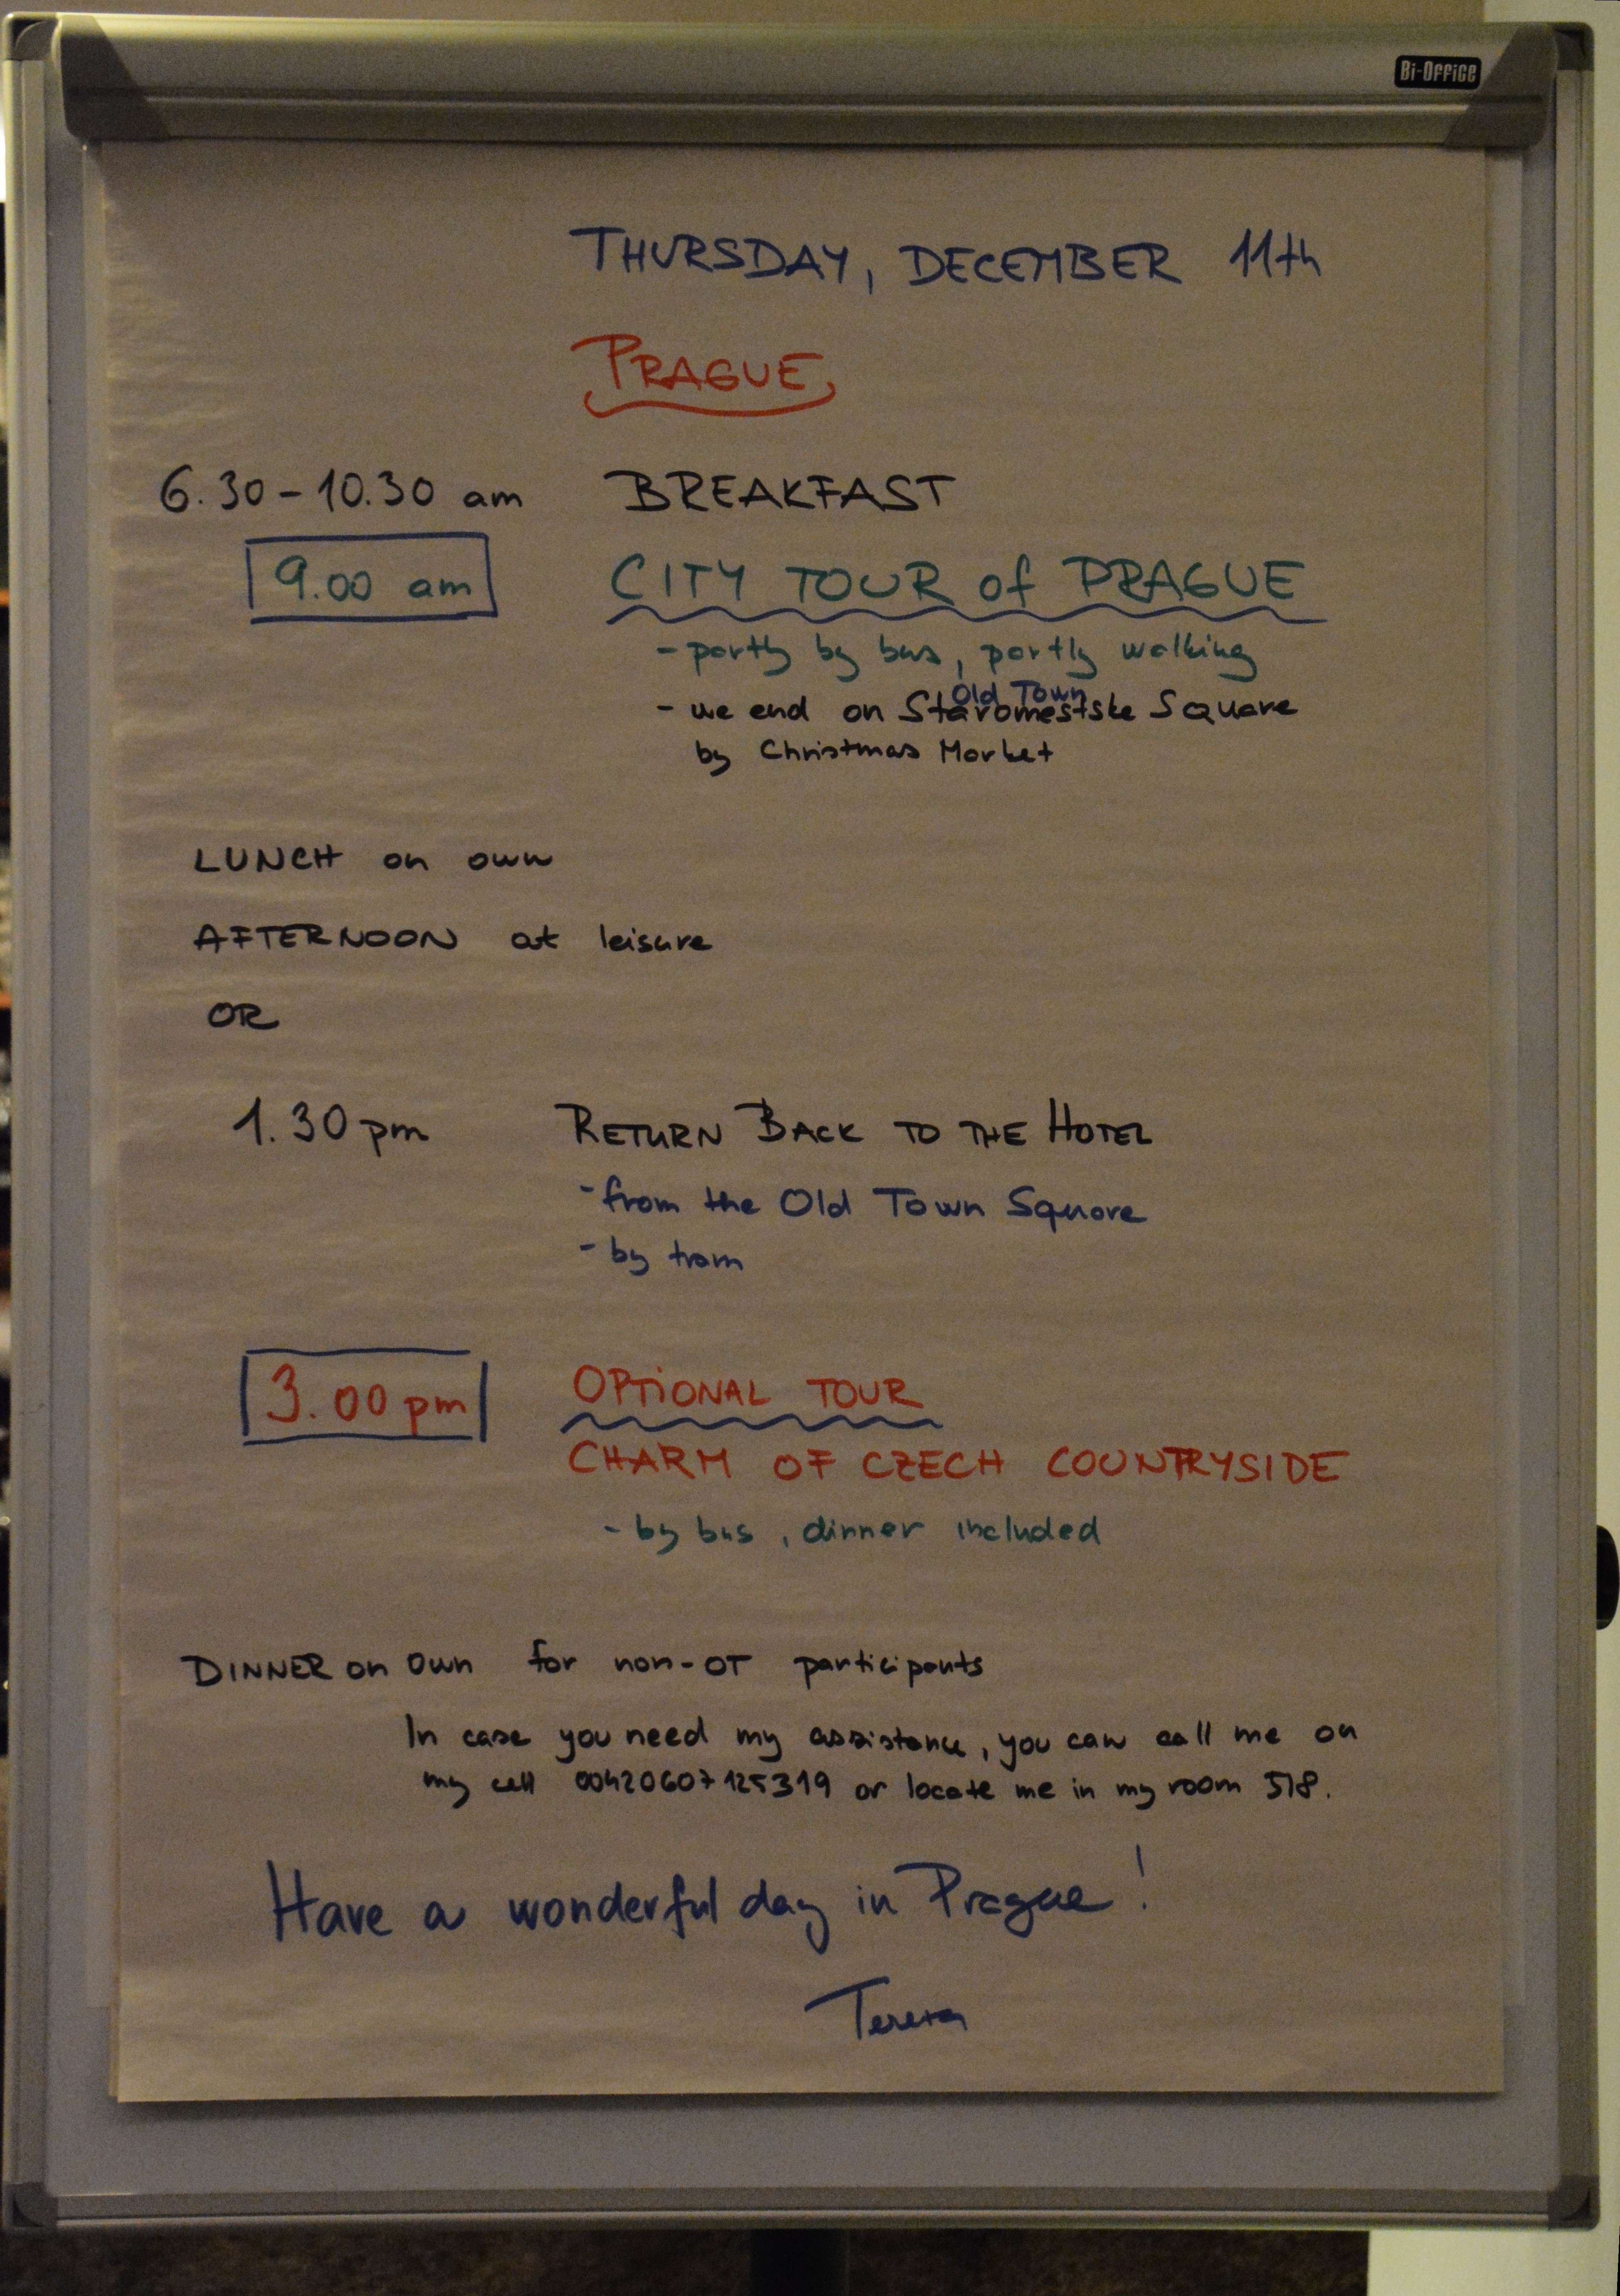 Bi-Office
THURSDAY, DECEMBER 11th
PRAGUE
6.30-10.30 am BREAKFAST
9.00 am CITY TOUR of PRAGUE
- partly by bus, partly walking
Old Town
- we end on Staromestske Square
by Christmas Market
LUNCH on own
AFTERNOON at leisure
OR
1.30 pm RETURN BACK TO THE HOTEL
- from the Old Town Square
- by tram
3.00 pm OPTIONAL TOUR
CHARM OF CZECH COUNTRYSIDE
- by bus, dinner included
DINNER on own for non-OT participants
In case you need my assistance, you can call me on
my cell 00420607125319 or locate me in my room 518.
Have a wonderful day in Prague!
Tereza